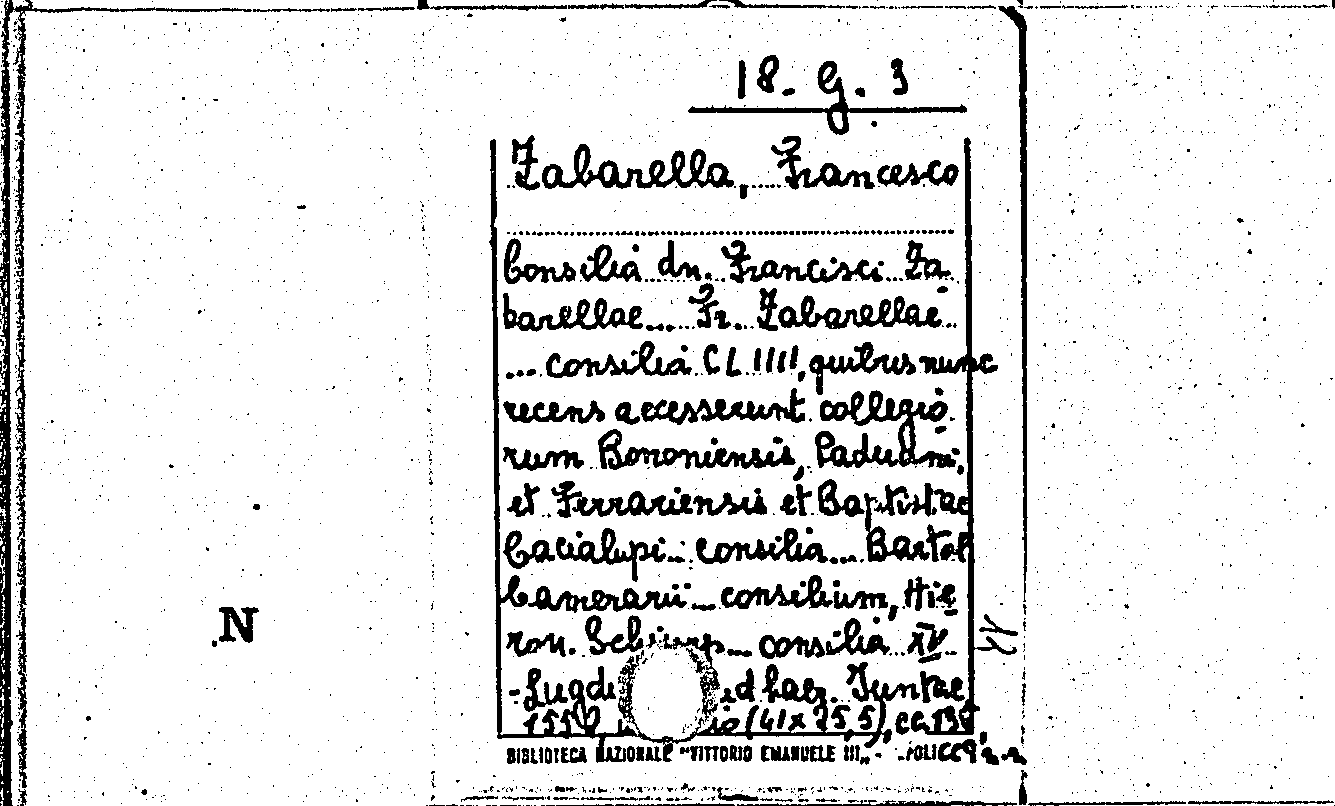 18. G. 3
Zabarella, Francesco
Consilia dn. Francisci Za-
barellae... Fr. Zabarellae
... consilia CLIIII, quibus nunc
recens accesserunt collegio-
rum Bononiensis, Paduani,
et Ferrariensis et Baptistae
Cacialupi... consilia... Bartol
Camerarii... consilium, Hie-
ron. Schiurp... consilia XV
N
-Lugdu ed haer. Juntae,
io (41x25,5), cc.
BIBLIOTECA NAZIONALE "VITTORIO EMANUELE III" - POLI